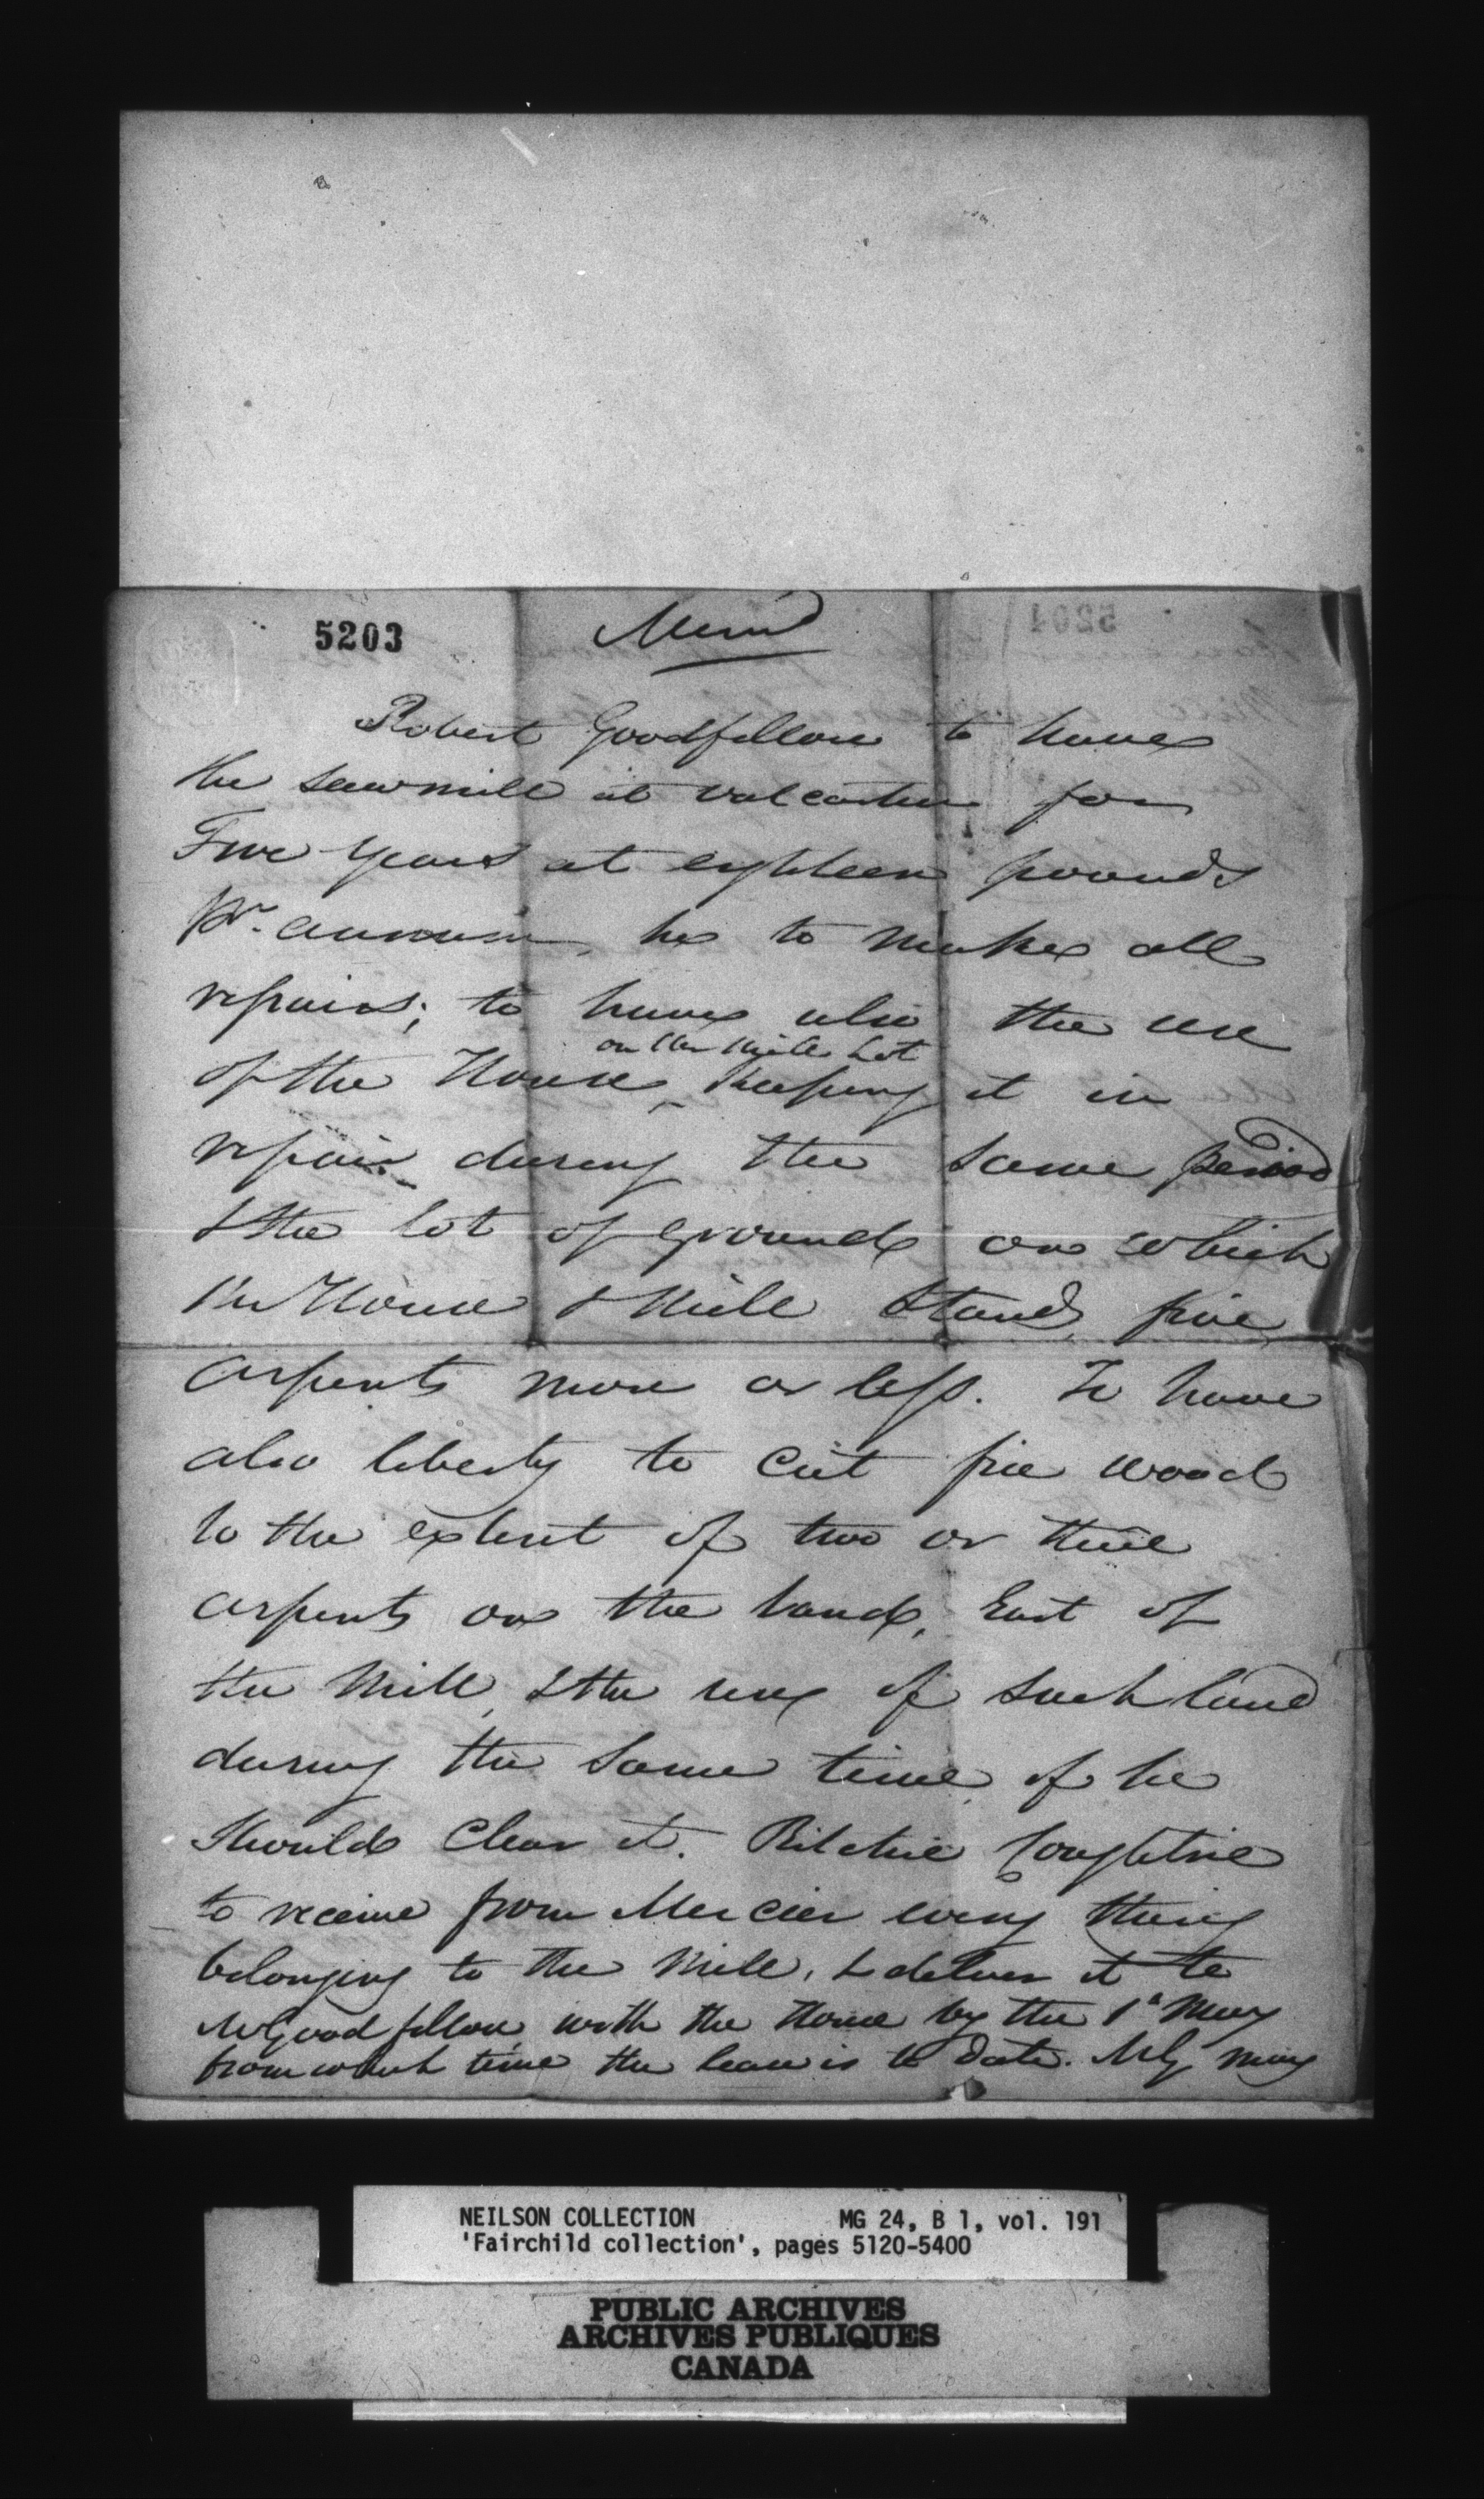 5203
Memd
Robert Goodfellow to have
the sawmill at Valcartier for
Five years at eighteen pounds
Pr. annum, he to make all
repairs; to have also the use
on the Mill Lot
of the House, keeping it in
repair during the same period
& the lot of ground on which
the House & Mill Stand, five
arpents more or less. To have
also liberty to cut fire wood
to the extent of two or three
arpents on the land, East of
the Mill, & the use of such land
during the same time if he
should clear it. Ritchie
to receive from Mercier every thing
belonging to the Mill, & deliver it to
Mr Goodfellow with the House by the 1st May
from which time the lease is to date. Mr G. may
NEILSON COLLECTION MG 24, B 1, vol. 191
'Fairchild collection', pages 5120-5400
PUBLIC ARCHIVES
ARCHIVES PUBLIQUES
CANADA